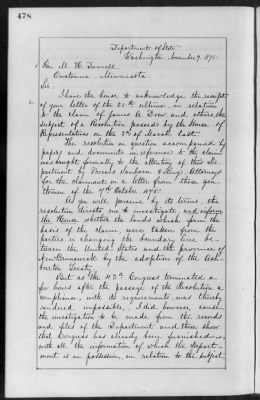 478
Department of State
Washington November 9, 1875.
Hon. M. H. Dunnell
Owatonna, Minnesota
Sir:
I have the honor to acknowledge the receipt
of your letter of the 25th ultimo, in relation
to the claim of James A. Drew, and others, the
subject of a Resolution passed by the House of
Representatives on the 3d of March last.
The resolution in question accompanied by
papers and documents in reference to the claim
was brought formally to the attention of this De-
partment by Messrs Sanborn & King, Attorneys
for the claimant in a letter from these gen-
tlemen of the 7th October 1875.
As you will perceive by its terms, the
resolution directs me to investigate, and inform
the House, whether the lands which form the
basis of the claim, were taken from the
parties in changing the boundary line be-
tween the United States and the province of
New Brunswick by the adoption of the Ash-
burton Treaty.
But as the 43d Congress terminated a
few hours after the passage of the Resolution a
compliance, with its requirements, was thereby
rendered impossible, I did, however, cause
the investigation to be made from the records
and files of the Department and these show
that Congress has already been furnished
with all the information of which the Depart-
ment is in possession, in relation to the subject